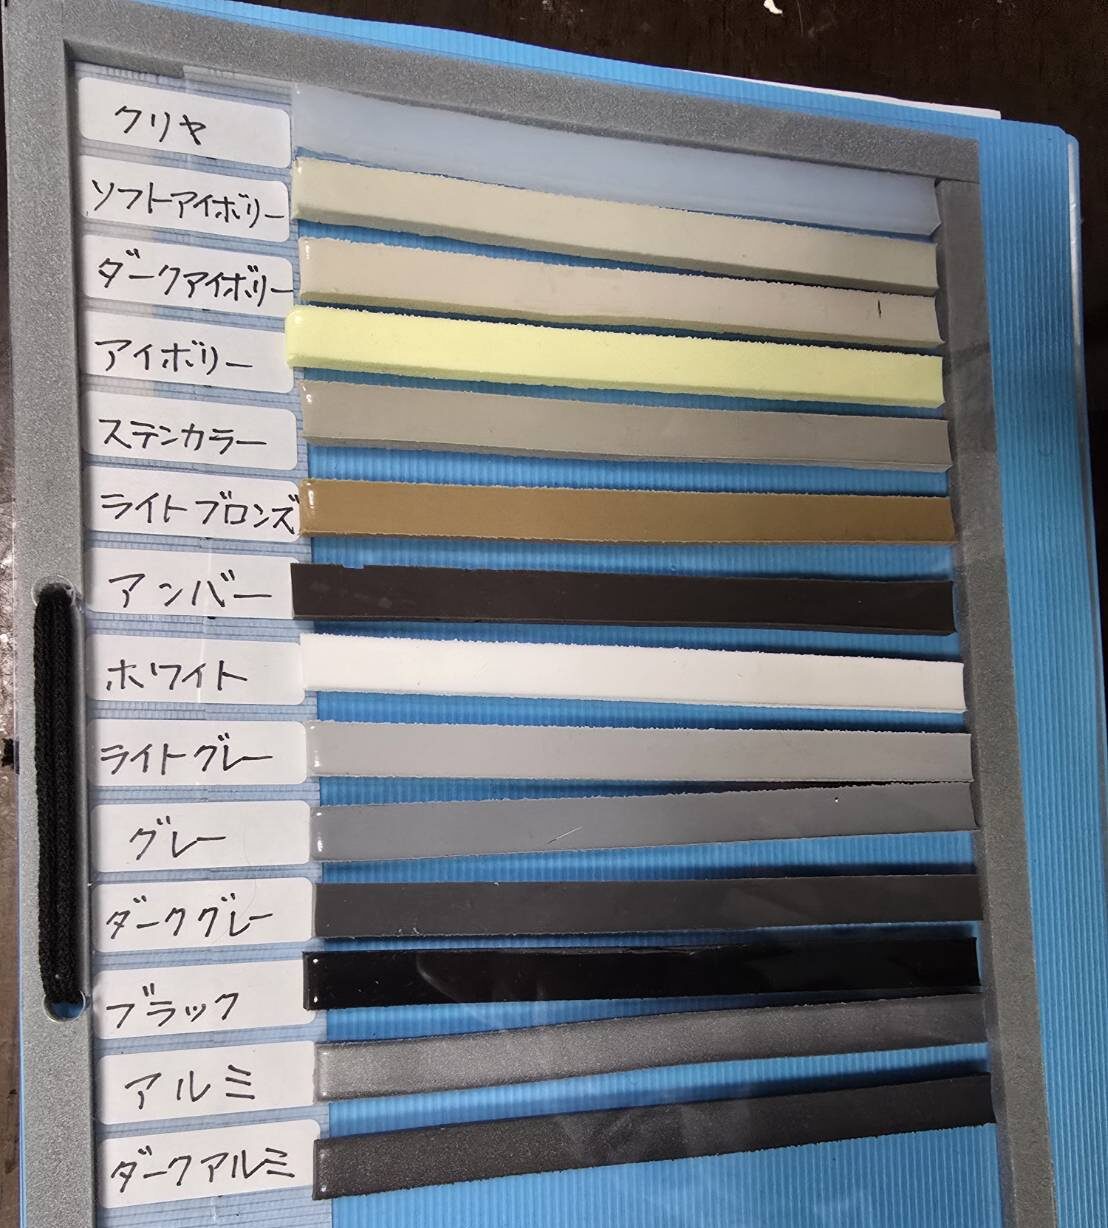 クリヤ
ソフトアイボリー
ダークアイボリー
アイボリー
ステンカラー
ライトブロンズ
アンバー
ホワイト
ライトグレー
グレー
ダークグレー
ブラック
アルミ
ダークアルミ